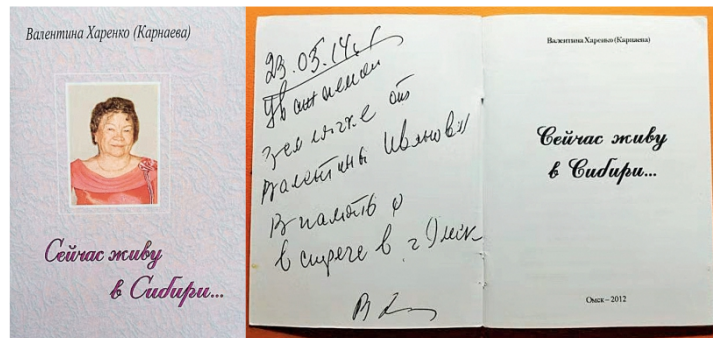 Валентина Харенко (Карнаева)
Сейчас живу
в Сибири...
23.05.14 г.
Уважаемой
землячке от
Валентины Ивановны
В память о
встрече в г. Омск
Валентина Харенко (Карнаева)
Сейчас живу
в Сибири...
Омск – 2012